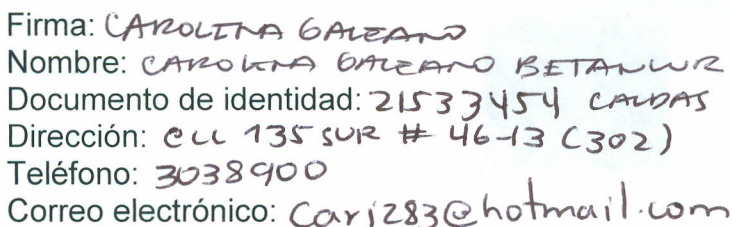 Firma: CAROLINA GALEANO
Nombre: CAROLINA GALEANO BETANCUR
Documento de identidad: 21533454 CALDAS
Dirección: CLL 135 SUR # 46-13 (302)
Teléfono: 3038900
Correo electrónico: Cari283@hotmail.com